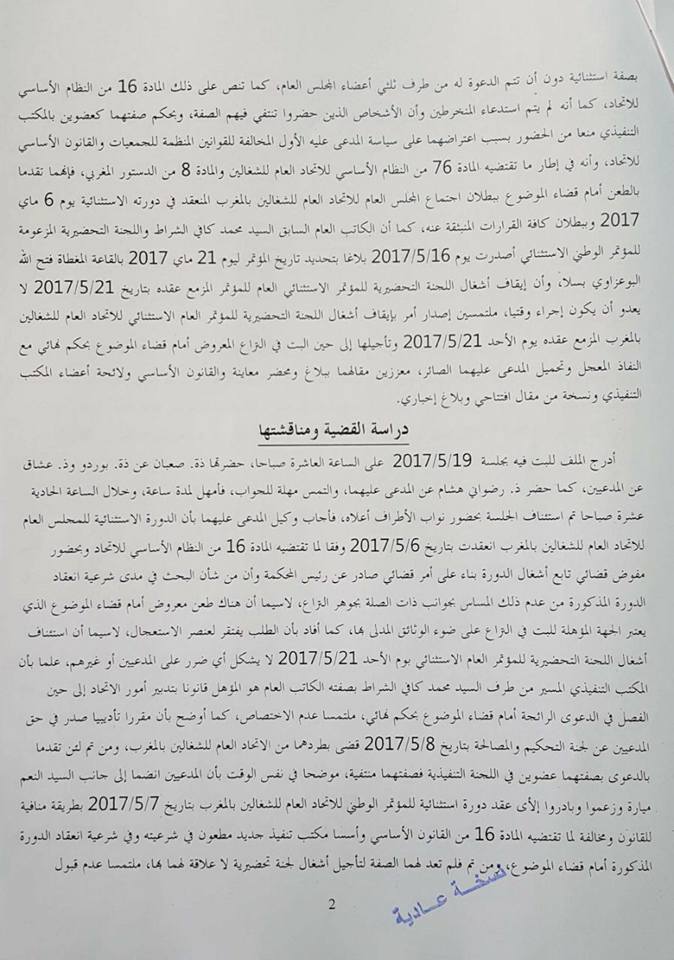 بصفة استثنائية دون أن تتم الدعوة له من طرف ثلثي أعضاء المجلس العام، كما تنص على ذلك المادة 16 من النظام الأساسي
للاتحاد، كما أنه لم يتم استدعاء المنخرطين وأن الأشخاص الذين حضروا تنتفي فيهم الصفة، وبحكم صفتهما كعضوين بالمكتب
التنفيذي منعا من الحضور بسبب اعتراضهما على سياسة المدعى عليه الأول المخالفة للقوانين المنظمة للجمعيات والقانون الأساسي
للاتحاد، وأنه في إطار ما تقتضيه المادة 76 من النظام الأساسي للاتحاد العام للشغالين والمادة 8 من الدستور المغربي، فإنهما تقدما
بالطعن أمام قضاء الموضوع ببطلان اجتماع المجلس العام للاتحاد العام للشغالين بالمغرب المنعقد في دورته الاستثنائية يوم 6 ماي
2017 وببطلان كافة القرارات المنبثقة عنه، كما أن الكاتب العام السابق السيد محمد كافي الشراط واللجنة التحضيرية المزعومة
للمؤتمر الوطني الاستثنائي أصدرت يوم 2017/5/16 بلاغا بتحديد تاريخ المؤتمر ليوم 21 ماي 2017 بالقاعة المغطاة فتح الله
البوعزاوي بسلا، وأن إيقاف أشغال اللجنة التحضيرية للمؤتمر الاستثنائي العام للمؤتمر المزمع عقده بتاريخ 2017/5/21 لا
يعدو أن يكون إجراء وقتيا، ملتمسين إصدار أمر بإيقاف أشغال اللجنة التحضيرية للمؤتمر العام الاستثنائي للاتحاد العام للشغالين
بالمغرب المزمع عقده يوم الأحد 2017/5/21 وتأجيلها إلى حين البت في النزاع المعروض أمام قضاء الموضوع بحكم نهائي مع
النفاذ المعجل وتحميل المدعى عليهما الصائر، معززين مقالهما ببلاغ ومحضر معاينة والقانون الأساسي ولائحة أعضاء المكتب
التنفيذي ونسخة من مقال افتتاحي وبلاغ إخباري.
دراسة القضية ومناقشتها
أدرج الملف للبت فيه بجلسة 2017/5/19 على الساعة العاشرة صباحا، حضرتها ذة. صعبان عن ذة. بوردو وذ. عشاق
عن المدعيين، كما حضر ذ. رضواني هشام عن المدعى عليهما، والتمس مهلة للجواب، فأمهل لمدة ساعة، وخلال الساعة الحادية
عشرة صباحا تم استئناف الجلسة بحضور نواب الأطراف أعلاه، فأجاب وكيل المدعى عليهما بأن الدورة الاستثنائية للمجلس العام
للاتحاد العام للشغالين بالمغرب انعقدت بتاريخ 2017/5/6 وفقا لما تقتضيه المادة 16 من النظام الأساسي للاتحاد وبحضور
مفوض قضائي تابع أشغال الدورة بناء على أمر قضائي صادر عن رئيس المحكمة وأن من شأن البحث في مدى شرعية انعقاد
الدورة المذكورة من عدم ذلك المساس بجوانب ذات الصلة بجوهر النزاع، لاسيما أن هناك طعن معروض أمام قضاء الموضوع الذي
يعتبر الجهة المؤهلة للبت في النزاع على ضوء الوثائق المدلى بها، كما أفاد بأن الطلب يفتقر لعنصر الاستعجال، لاسيما أن استئناف
أشغال اللجنة التحضيرية للمؤتمر العام الاستثنائي يوم الأحد 2017/5/21 لا يشكل أي ضرر على المدعيين أو غيرهم، علما بأن
المكتب التنفيذي المسير من طرف السيد محمد كافي الشراط بصفته الكاتب العام هو المؤهل قانونا بتدبير أمور الاتحاد إلى حين
الفصل في الدعوى الرائجة أمام قضاء الموضوع بحكم نهائي، ملتمسا عدم الاختصاص، كما أوضح بأن مقررا تأديبيا صدر في حق
المدعيين عن لجنة التحكيم والمصالحة بتاريخ 2017/5/8 قضى بطردهما من الاتحاد العام للشغالين بالمغرب، ومن تم لئن تقدما
بالدعوى بصفتهما عضوين في اللجنة التنفيذية فصفتهما منتفية، موضحا في نفس الوقت بأن المدعيين انضما إلى جانب السيد النعم
ميارة وزعموا وبادروا إلأى عقد دورة استثنائية للمؤتمر الوطني للاتحاد العام للشغالين بالمغرب بتاريخ 2017/5/7 بطريقة منافية
للقانون ومخالفة لما تقتضيه المادة 16 من القانون الأساسي وأسسا مكتب تنفيذ جديد مطعون في شرعيته وفي شرعية انعقاد الدورة
المذكورة أمام قضاء الموضوع، ومن تم فلم تعد لهما الصفة لتأجيل أشغال لجنة تحضيرية لا علاقة لهما بها، ملتمسا عدم قبول
نسخة عادية
2